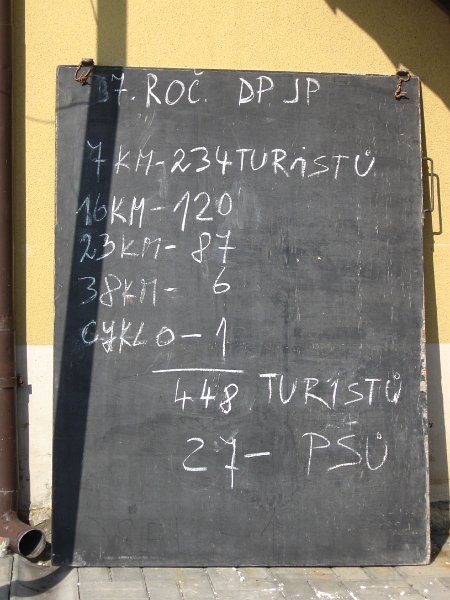 37. ROČ. DP JP
7 KM-234 TURiSTŮ
16KM-120
23KM-87
38KM-6
CYKLO-1
448 TURiSTŮ
27- PSŮ